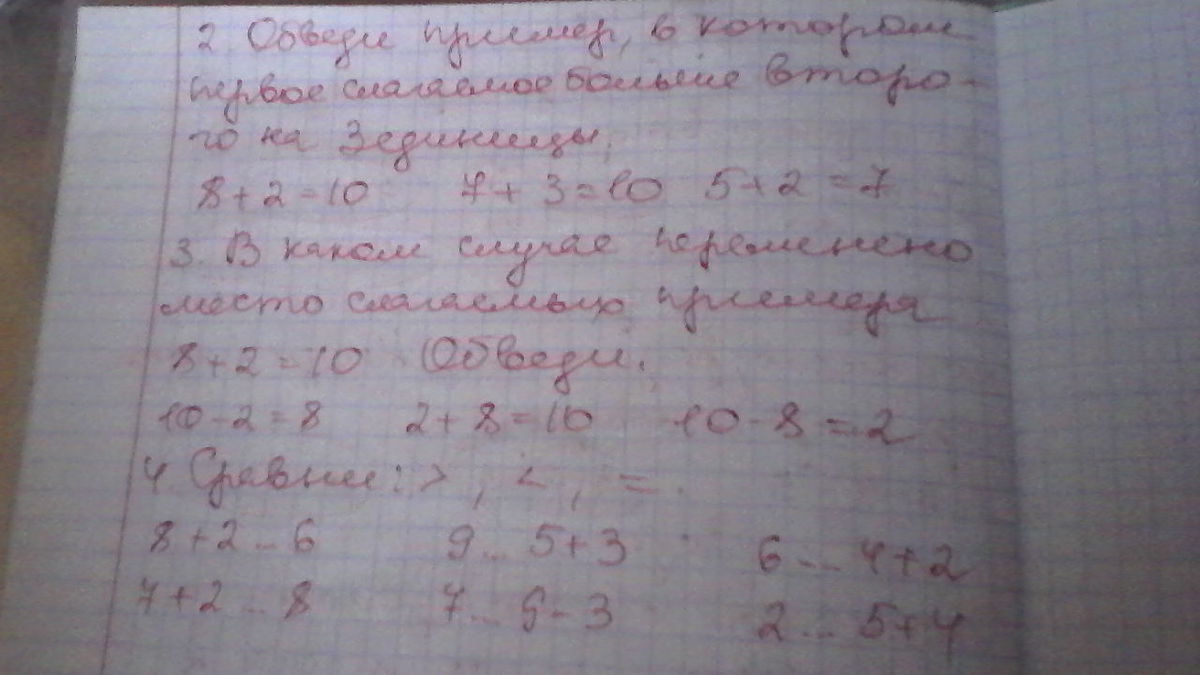 2. Обведи пример, в котором
первое слагаемое больше второ-
го на 3 единицы.
8+2=10 7+3=10 5+2=7
3. В каком случае переменено
место слагаемых примера
8+2=10 Обведи.
10-2=8 2+8=10 10-8=2
4 Сравни: >, <, =.
8+2...6 9...5+3 6...4+2
7+2...8 7...9-3 2...5+4